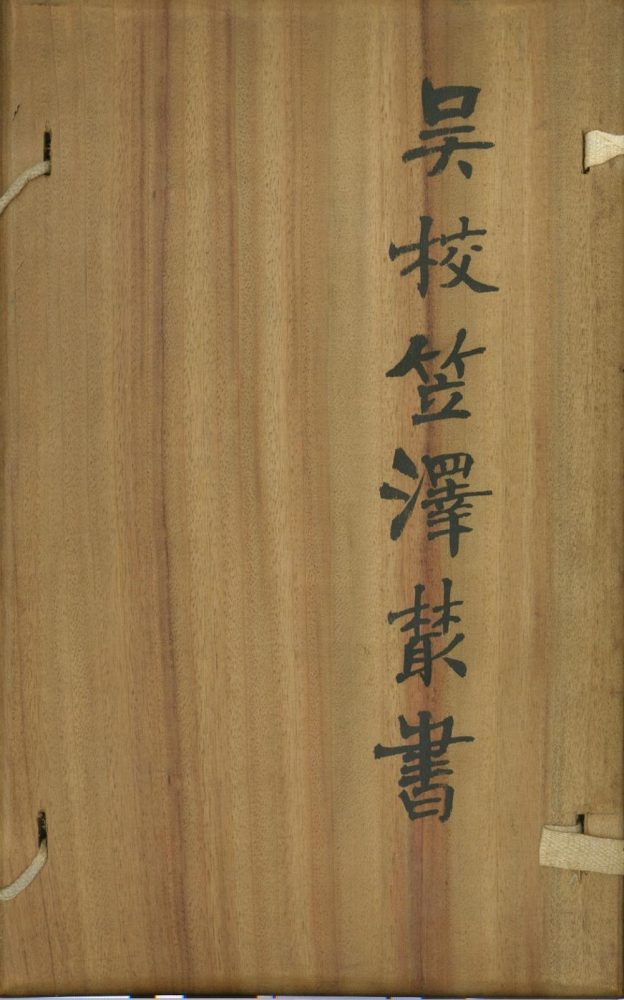 吴校笠澤叢書